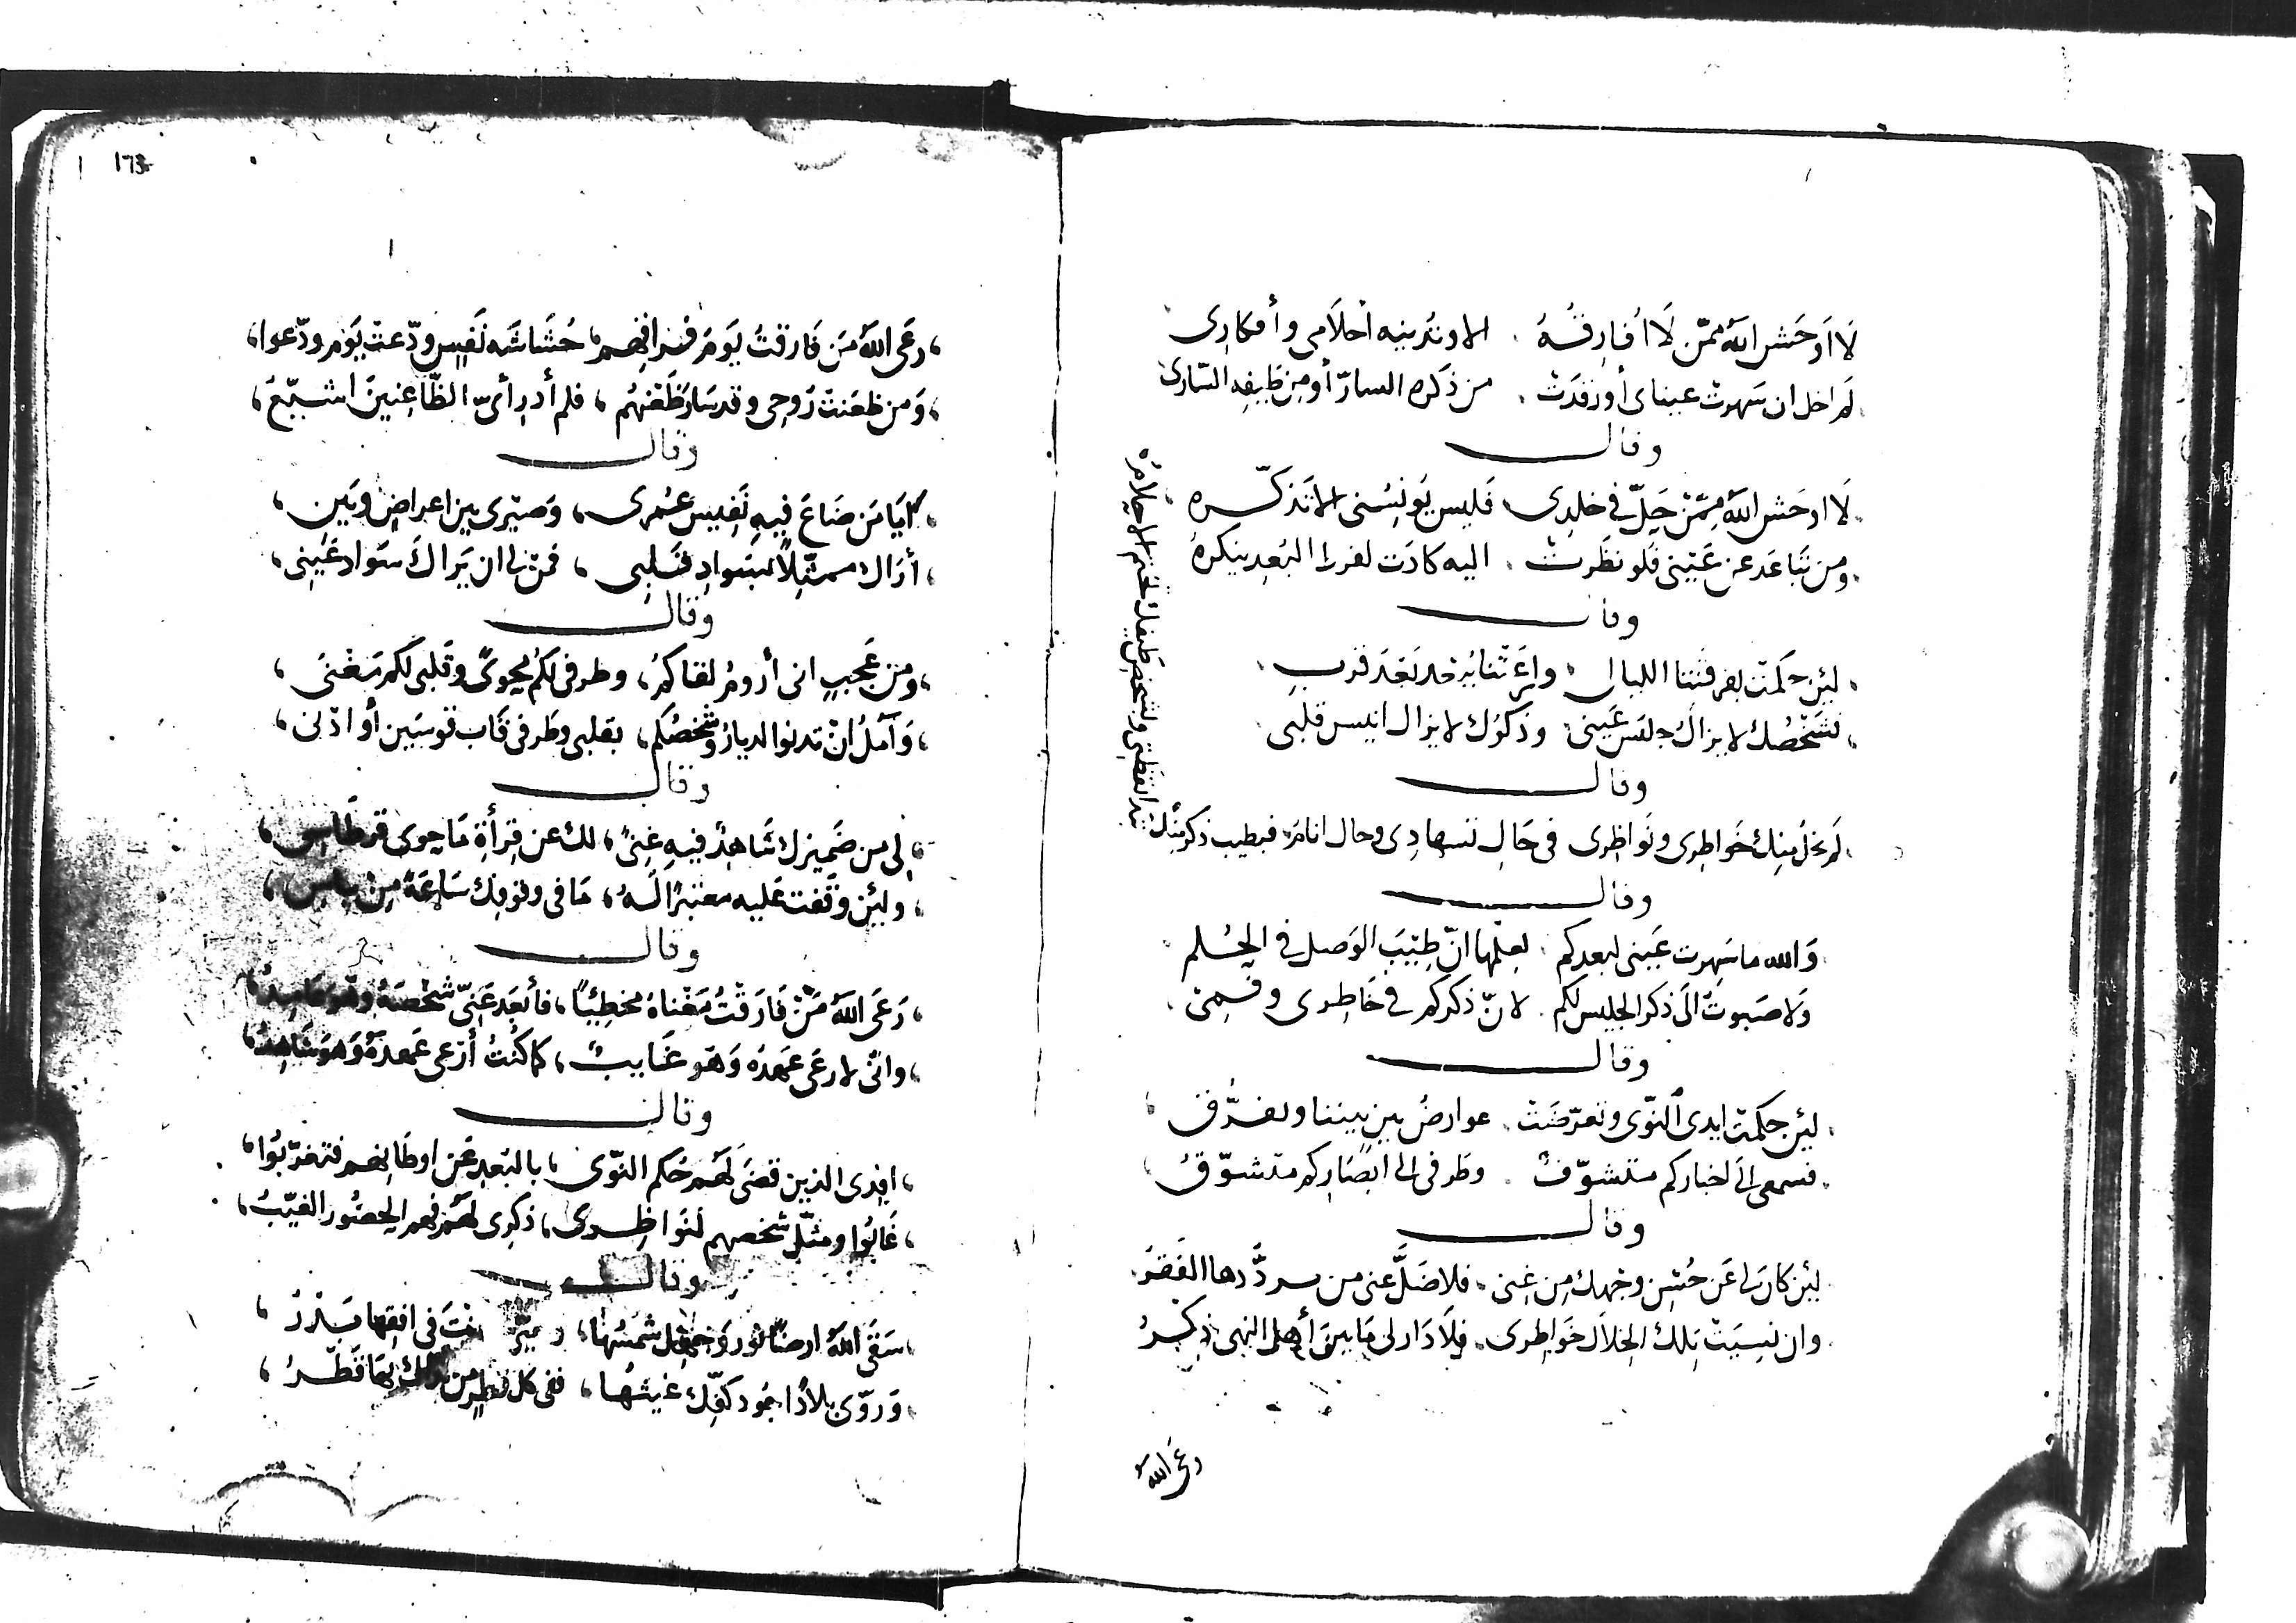 لَا أوحَش اللهُ ممّن لَا أُفارِقُهُ الا وتُدنيه أحلَامى وأفكارِى
لم اخل ان سَهرت عيناى أو رَقَدَتْ من ذكره السارّ أو مِن طَيفِه السّارى
وقال
لَا اوحَش اللهُ مِمّنْ حَلّ في خلدِى فَليس يُونِسُنى الا تَذكّره
ومن تَبَاعَد عن عَيْنى فلو نظَرتْ اليه كادَت لفرط البُعدِ ينكرهُ
وقال
لئِن حكمَتْ بفرقتنا الليالى وَاعَ ثنائه قد بَعد قربِ
فشَخْصُك لا يزالُ جليسَ عَينى وذكرُك لا يزال انيس قلبى
وقال
لم يخلُ مِنك خَواطرِى ونَواظرِى فى حَال تسهادِى وحال انامُ فبطيب ذكر مِنك
تبدا يقظتى ولشخصِ طَيفك تختم الاحلامُ
وقال
وَالله ما سَهِرت عَينى لبعدِكم لعِلمها انّ طِيبَ الوَصل في الحُلم
وَلا صَبوتُ الَى ذكر الجليس لكم لانّ ذكركم في خَاطرى وفمى
وقال
لئِن حكمتْ ايدى النّوى وتعرّضَتْ عوارضُ بين بيننا وتفرّق
فسمعى الَى اخباركم متشوّفٌ وطَرفى الى ابصَاركم متشوّقُ
وقال
لئِن كان لى عَن حُسنِ وجهك مِن غِنى فلا ضَلَّ عنى من سردّدها الفَقرُ
وان نسِيَتْ تلك الخلَال خَواطرى فلَا دَار لى مَا بين أهل النهى ذِكرُ
رعَى الله
١٦٣
رعَى اللهُ مَن فَارقتُ يَومَ فراقِهم حُشَاشَه نَفسٍ ودّعتْ يَوم ودّعوا
وَمن ظعَنتْ رُوحِى وقد سَارَ ظَعْنهُم فلم أدرِ أىّ الظّاعِنينَ اشيّعُ
وقال
أيَا مَن ضَاعَ فِيهِ نَفِيس عُمرى وَصَيّرى بين اعراضٍ وبَين
أرَاك ممثّلًا بسَوادِ قَلبِى فمَنْ لى ان يَراكَ سَواد عَينى
وقال
ومِن عَجبٍ انى أرومُ لقاكمُ وطرفى لكُم يحوِى وقَلبى لكم مَغْنَى
وَآمُلُ انْ تدنوا الديارُ وشَخصُكم بقلبى وطَرفى قَاب قوسَين أو ادْنى
وقال
لى مِن ضَميرِك شَاهِدٌ فيهِ غِنًى لك عن قِرأةِ مَا حوى قرطَاسِى
ولئِن وَقفت عَليه معتبرًا لَهُ مَا فى وقوفِك سَاعَةً مِنْ باسِ
وقال
رَعَى اللهُ مَنْ فَارَقْتُ مَغْناهُ مخطِئًا فأبعَد عَنّى شخْصَهُ وهو عَامِدُ
وانّى لا رعَى عَهدَه وَهو غَايبٌ كما كُنْتُ أرْعى عَهدَهُ وَهوَ شَاهِدُ
وقال
افِدى الذين قضَى لَهُم حُكم النّوى بالبُعدِ عَن اوطَانِهم فتغرّبُوا
غَابُوا ومثّل شخصهم لنَواظِرى ذكرِى لهُم فهم الحضُور الغيّبُ
وقال
سَقَى اللهُ ارضًا نُور وَجهِك شمسُها بَدْرُ
وَروّى بلادًا جُود كفّك غيثُها ففى كل قطرٍ من نداك بهَا قَطْرُ